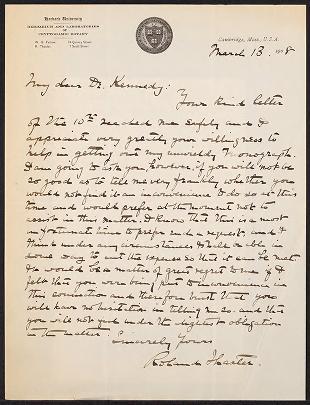 Harvard University
HERBARIUM AND LABORATORIES
OF
CRYPTOGAMIC BOTANY
Cambridge, Mass., U.S.A.
March 13.
My dear Dr. Kennedy:
Your kind letter
of the 10th reached me safely and I
appreciate very greatly your willingness to
help in getting out my unwieldy Monograph.
I am going to ask you, however, if you will not be
so good as to tell me very frankly whether you
would not find it an inconvenience to do so at this
time and would prefer at the moment not to
assist in this matter. I know that this is a most
unfortunate time to prefer such a request, and I
think under any circumstances I shall be able in
some way to cut the expense so that it can be met.
It would be a matter of great regret to me if I
felt that you were being put to inconvenience in
this connection and therefore trust that you
will have no hesitation in telling me so. and that
you will not feel under the slightest obligation
in the matter.
Sincerely Yours
Roland Thaxter.